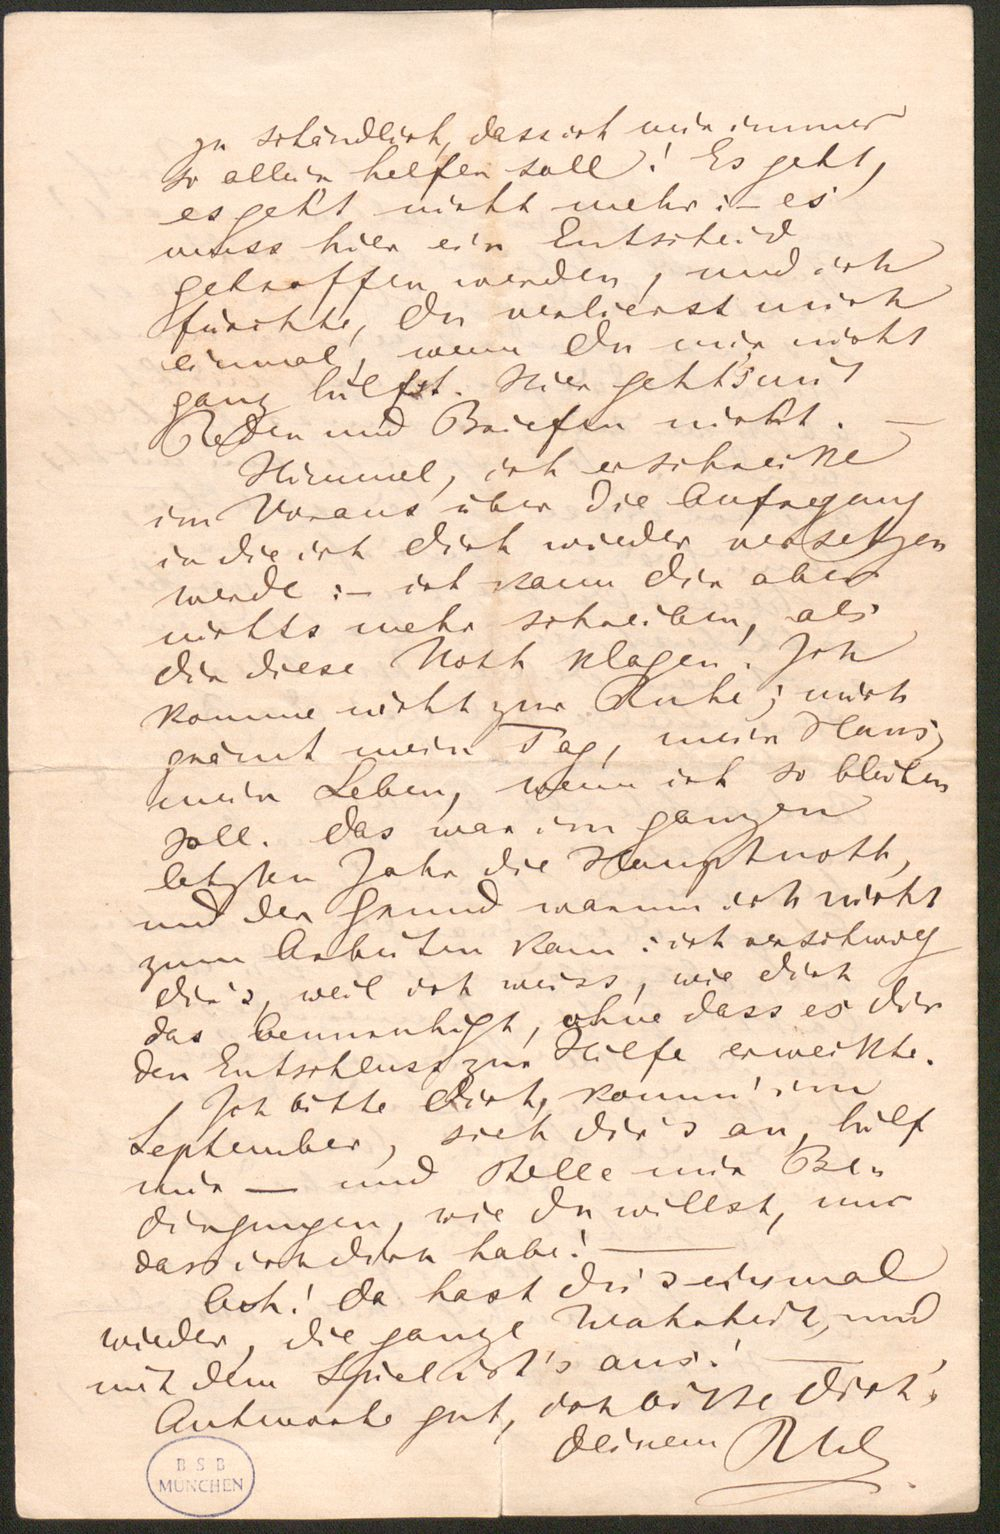 zu schändlich, dass ich mir immer
so allein helfen soll! Es geht,
es geht nicht mehr: — es
muss hier ein Entscheid
getroffen werden, und ich
fürchte, Du verlierst mich
einmal, wenn Du mir nicht
ganz hilfst. Hier geht's mit
Reden und Briefen nicht. —
Himmel, ich erschrecke
im Voraus über die Aufregung
in die ich Dich wieder versetzen
werde: — ich kann Dir aber
nichts mehr schreiben, als
Dir diese Noth klagen. Ich
komme nicht zur Ruhe; mich
grämt mein Tag, mein Haus,
mein Leben, wenn ich so bleiben
soll. Das war im ganzen
letzten Jahr die Hauptnoth,
und der Grund warum ich nicht
zum Arbeiten kam: ich verschwieg
Dir's, weil ich weiss, wie Dich
das beunruhigt, ohne dass es Dir
den Entschluss zur Hilfe erweckte.
Ich bitte Dich, komm' im
September, sieh Dir's an, hilf
mir — und stelle mir Be-
dingungen, wie Du willst, nur
dass ich Dich habe! —
Ach! Da hast Du's einmal
wieder, die ganze Wahrheit, und
mit dem Spiel ist's aus! —
Antworte gut, ich bitte Dich!
Deinem
B S B
MÜNCHEN